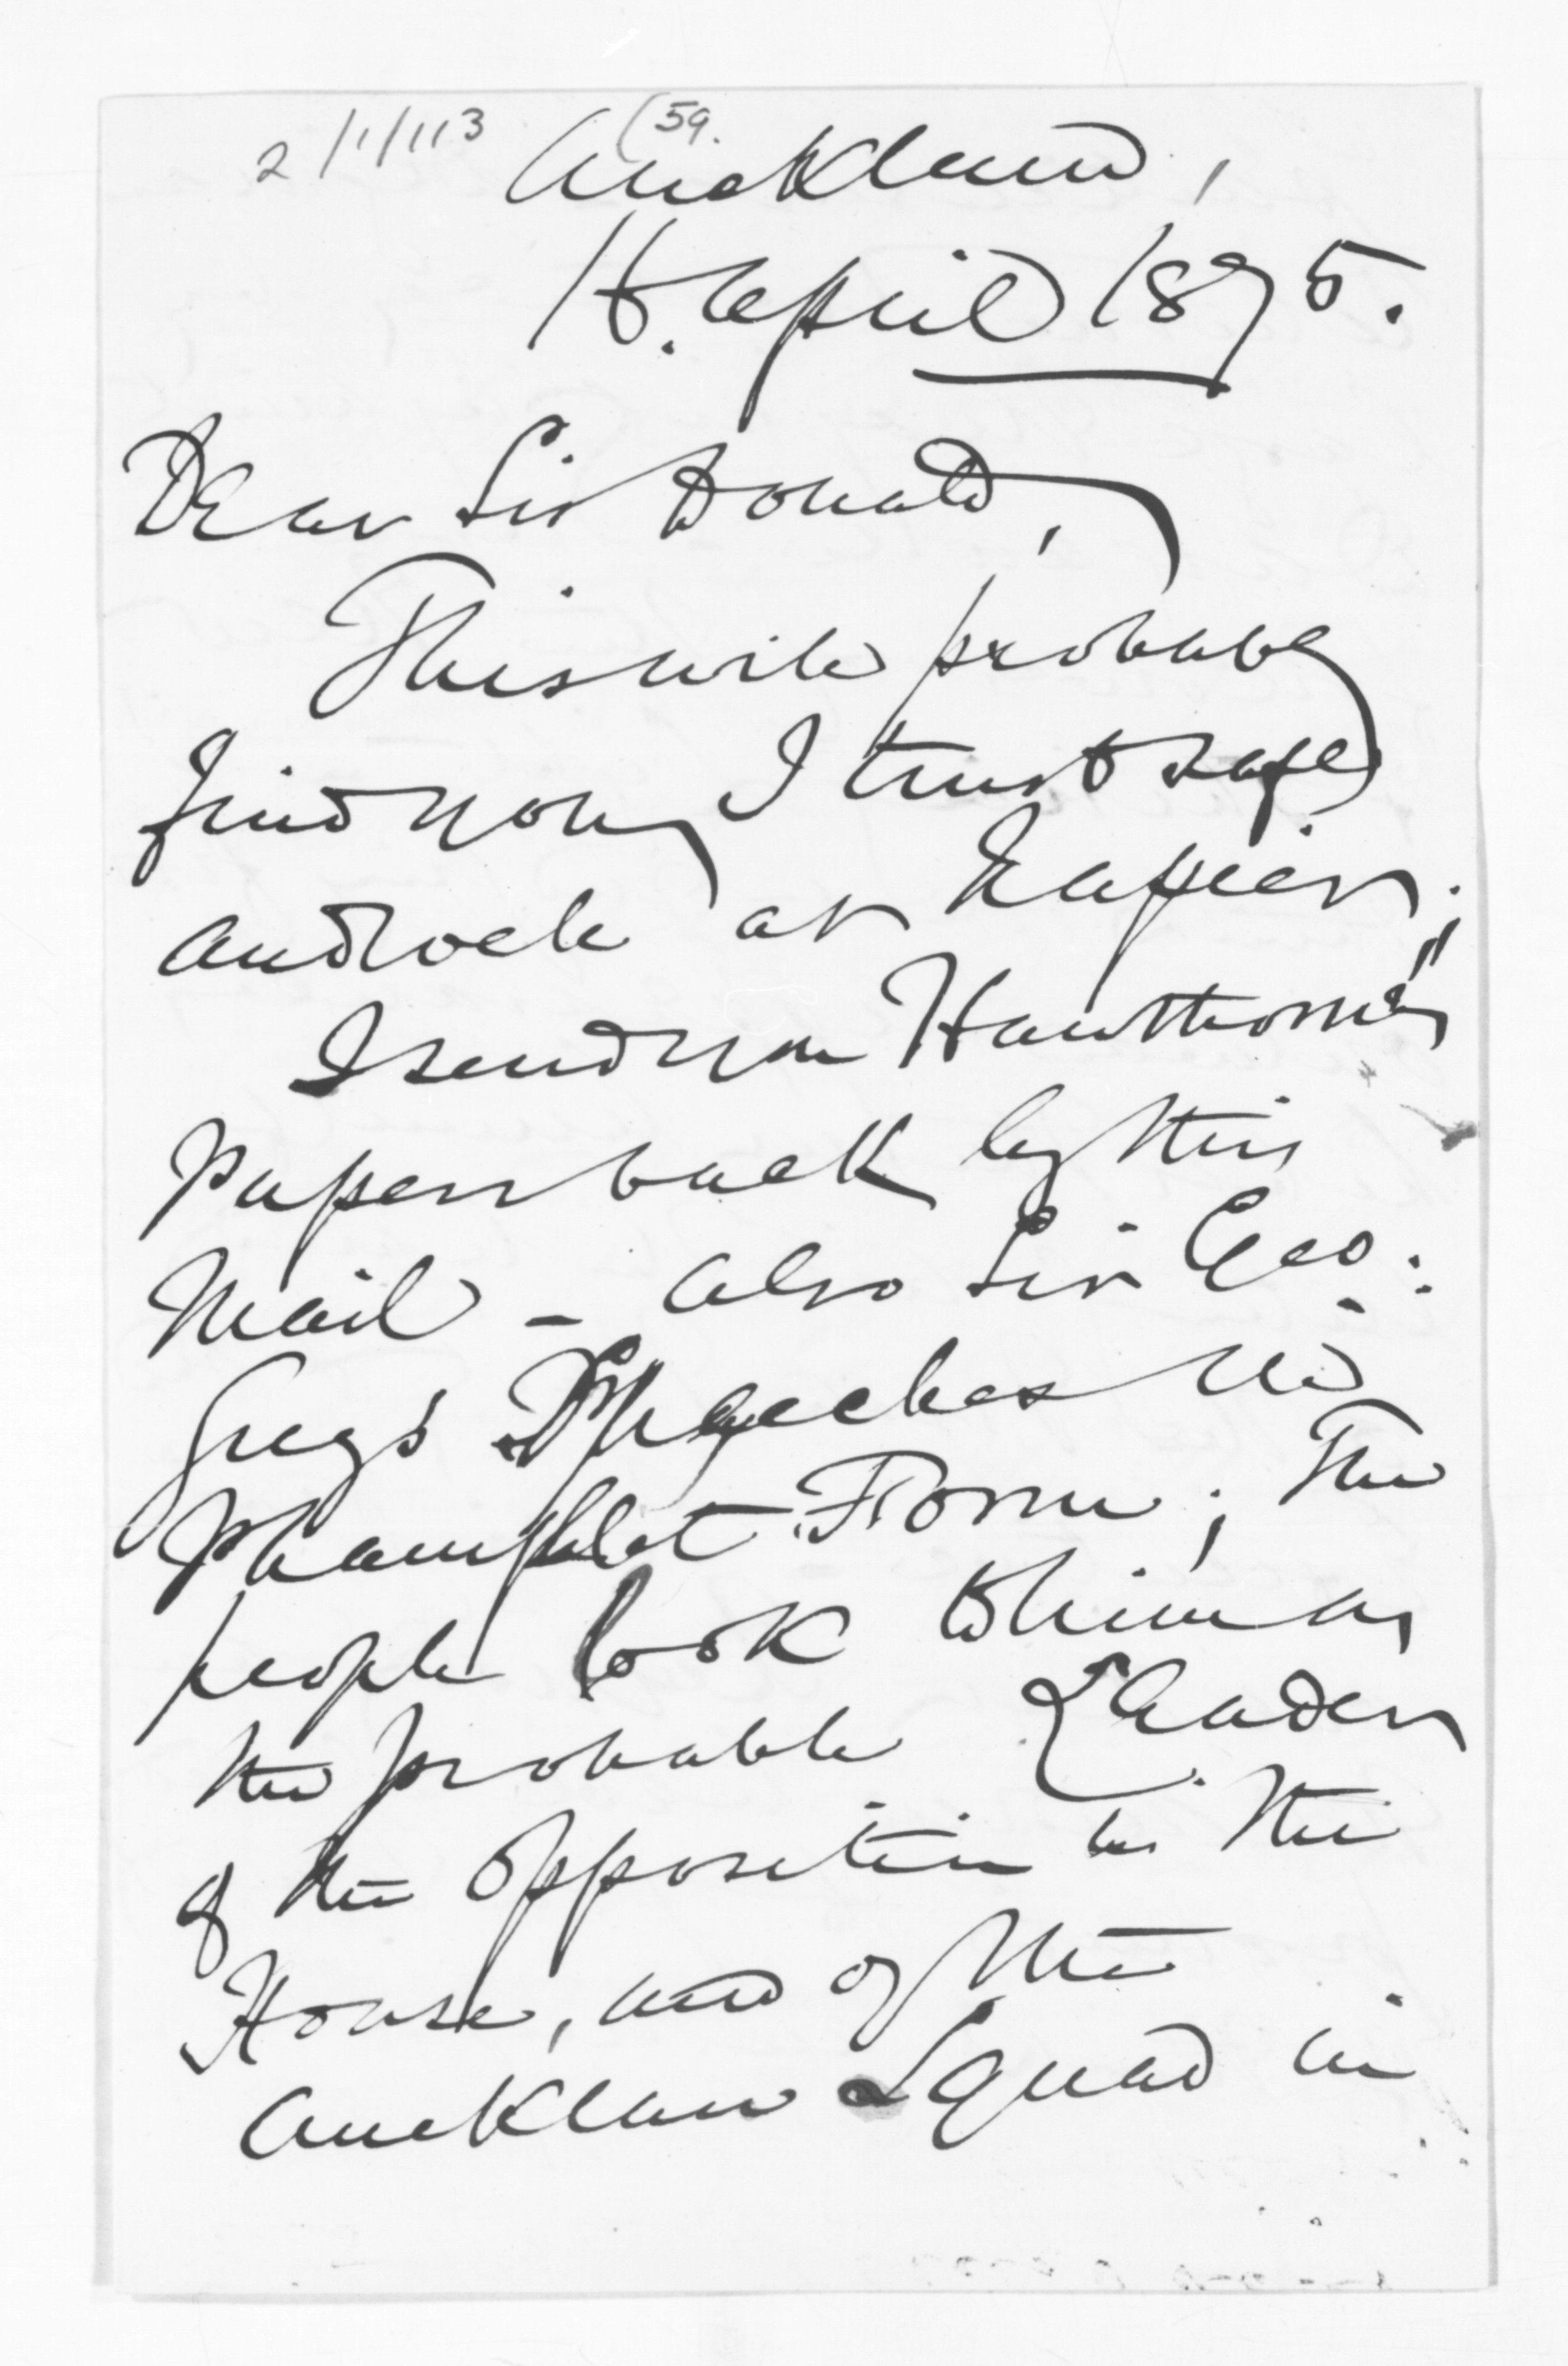 2/1/113 (59.
Auckland,
16. April 1875.
Dear Sir Donald,
This will probably
find you, I trust safe
and well at Napier;
I send you Hawthorne's
Papers back by this
Mail - also Sir Geo:
Grey's Speeches in
Phamphlet Form; The
people look to him as
the probable Leader
of the Opposition in the
House, and of the
Auckland Squad in